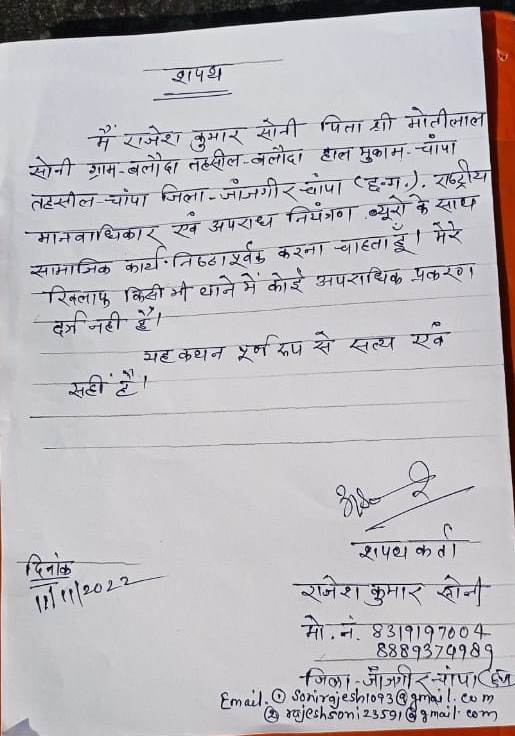 शपथ
मैं राजेश कुमार सोनी पिता श्री मोतीलाल
सोनी ग्राम-बलौदा तहसील-बलौदा हाल मुकाम-चांपा
तहसील-चांपा जिला-जाँजगीर चांपा (छ.ग.). राष्ट्रीय
मानवाधिकार एवं अपराध नियंत्रण ब्यूरो के साथ
सामाजिक कार्य निष्ठा पूर्वक करना चाहता हूँ। मेरे
खिलाफ किसी भी थाने में कोई अपराधिक प्रकरण
दर्ज नही है।
यह कथन पूर्ण रूप से सत्य एवं
सहीं है।
शपथ कर्ता
दिनांक
11/11/2022
राजेश कुमार सोनी
मो. नं. 8319197004
8889374989
जिला-जाँजगीर-चांपा (छ.ग
Email. ① sonirajesh1093@gmail.com
② rajeshsoni23591@gmail.com